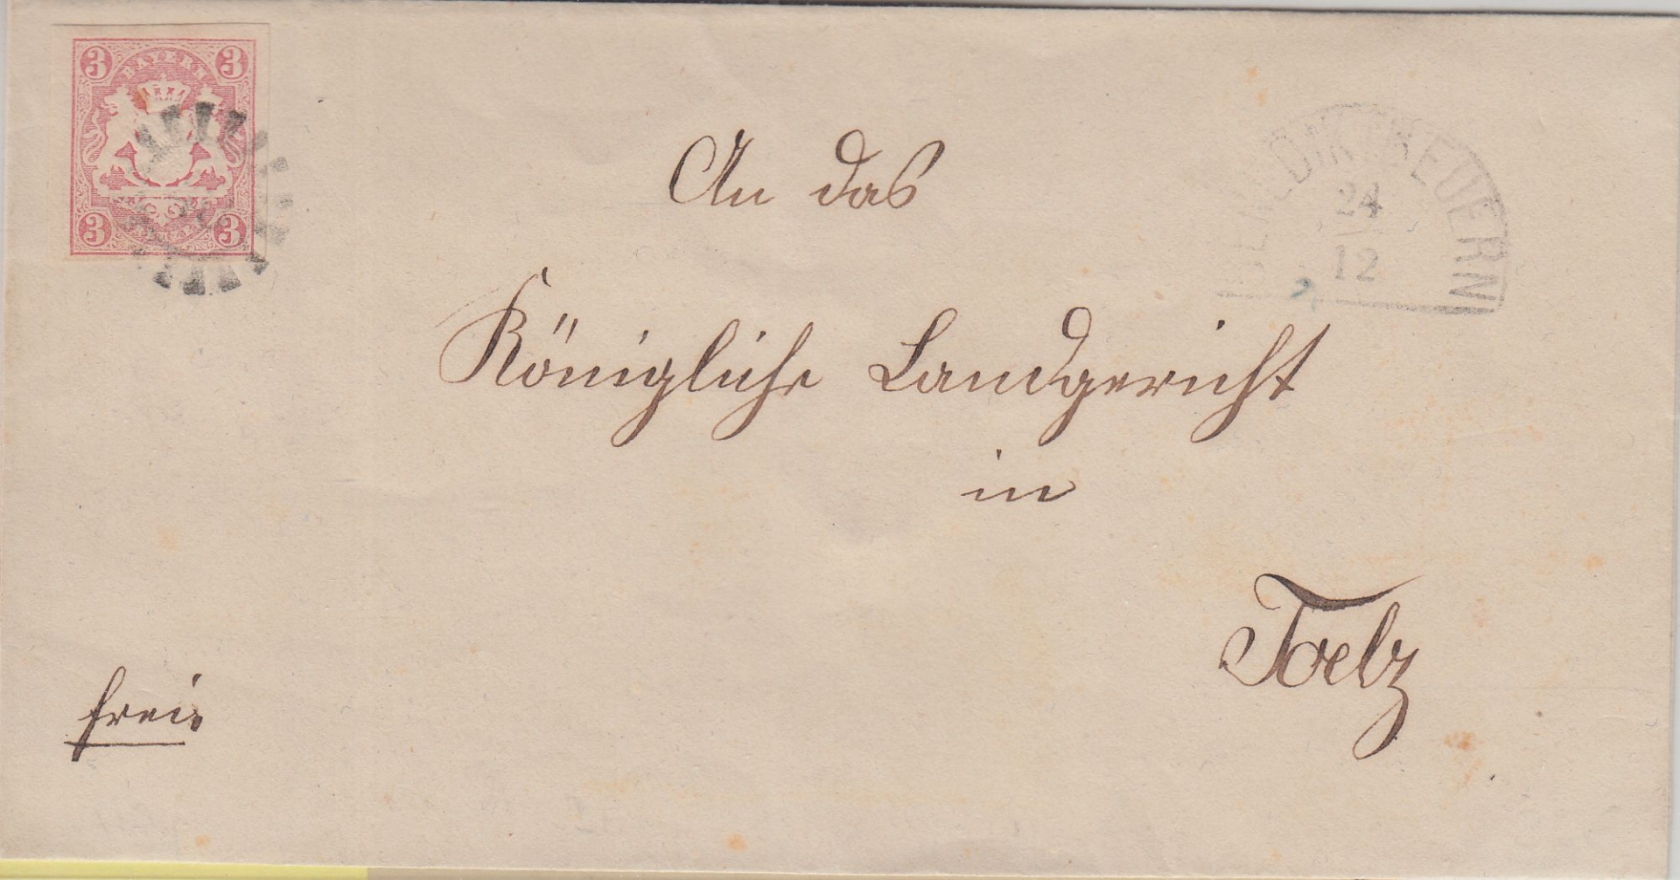 3 3
BAYERN
3 3
BENEDIKTBEUERN
24
12
An das
Königliche Landgericht
in
Toelz
frei.